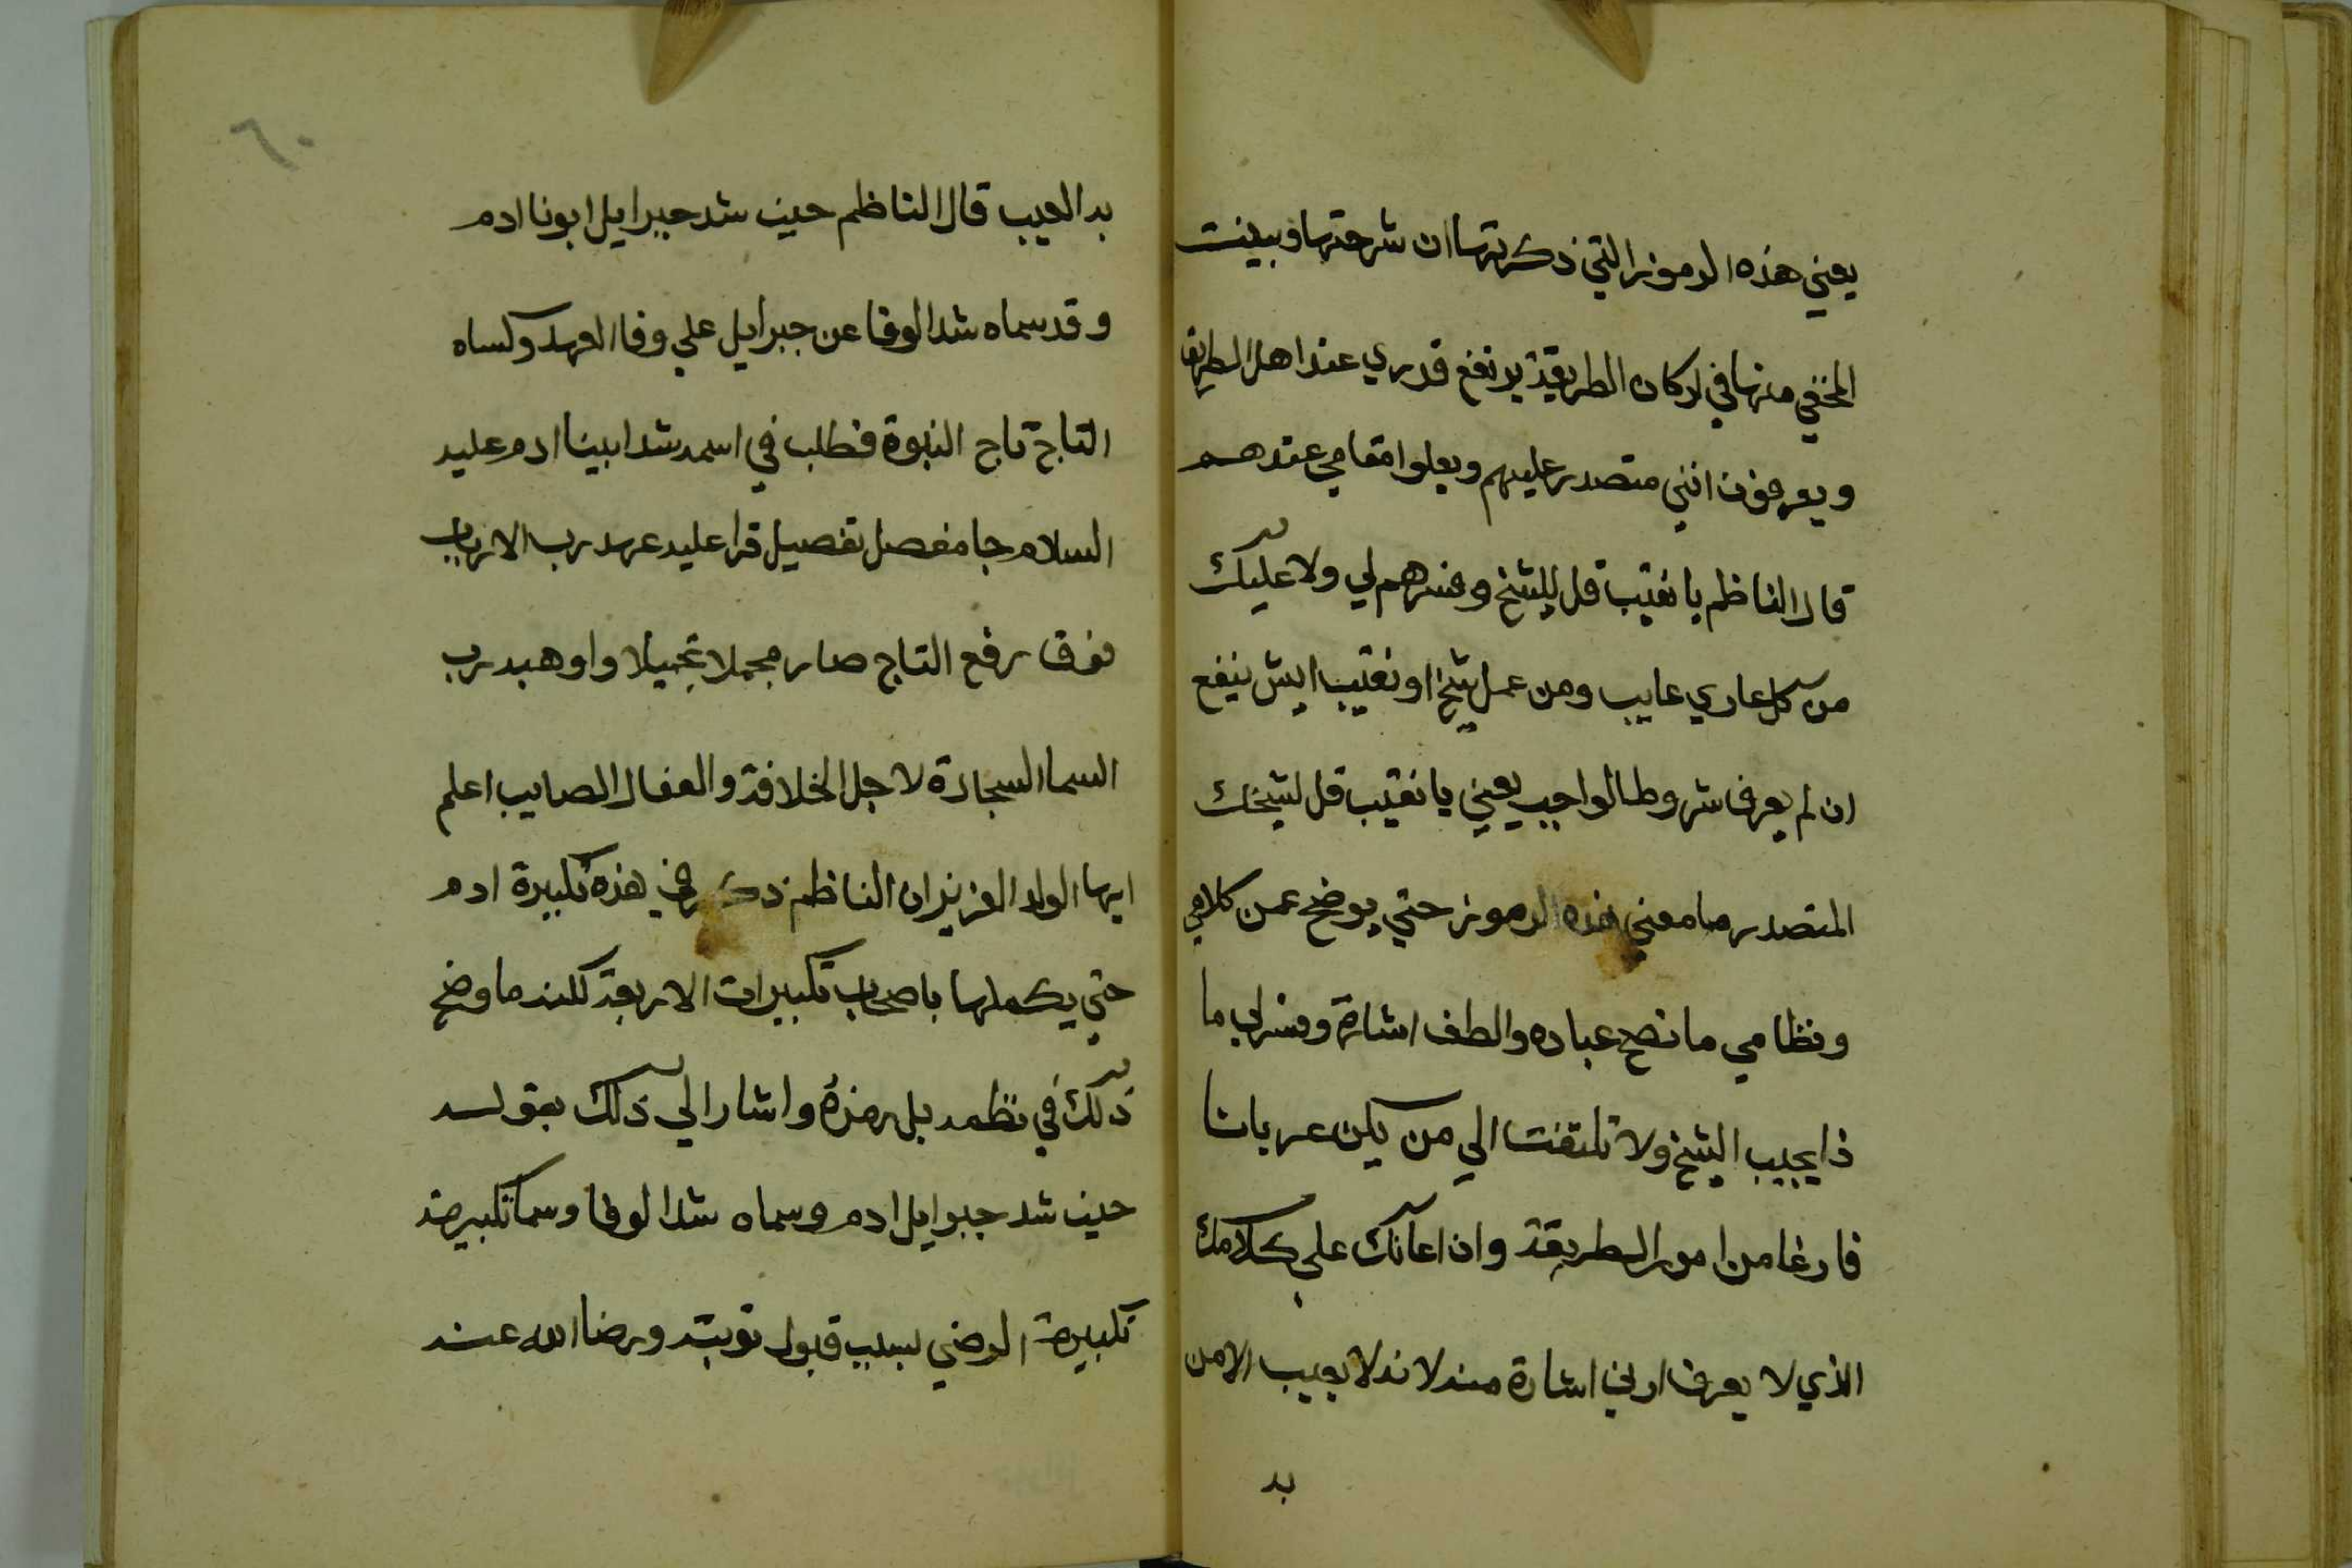 يعني هذه الرموز التي ذكرتها ان شرحتها وبينت
المخفي منها في اركان الطريقة يرتفع قدري عند اهل الطريق
ويعرفون انني متصدر عليهم ويعلوا مقامي عندهم
قال الناظم يا نقيب قل للشيخ وفسرهم لي ولا عليك
من كل عاري عايب ومن عمل شيخ او نقيب ايش ينفع
ان لم يعرف شروط الواجب يعني يا نقيب قل لشيخك
المتصدر ما معني هذه الرموز حتي يوضح عن كلامي
ونظامي ما نصح عباده والطف اشارة وفسر لي ما
ذا يجيب الشيخ ولا تلتفت الي من يكن عريانا
فارغا من امور الطريقة وان اعانك علي كلامك
الذي لا يعرف ادني اشارة منه لانه لا يعيب الا من
به
٦٠
به العيب قال الناظم حين شد جبرايل ابونا ادم
وقد سماه شد الوفا عن جبرايل علي وفا العهد وكساه
التاج تاج النبوة فطلب في اسمه شد ابينا ادم عليه
السلام جا مفصل تفصيل قرا عليه عهد رب الارباب
فوق رفع التاج صار مجملا تجميلا واوهبه رب
السما السجادة لاجل الخلافة والفعال الصايب اعلم
ايها الولد العزيز ان الناظم ذكر في هذه تكبيرة ادم
حتي يكملها باصحاب تكبيرات الاربعة لكنه ما وضح
ذلك في نظمه بل رمزه واشار الي ذلك بقوله
حين شد جبرايل ادم وسماه شد الوفا وسما تكبيرته
تكبيرة الرضي لسبب قبول توبته ورضا الله عنه